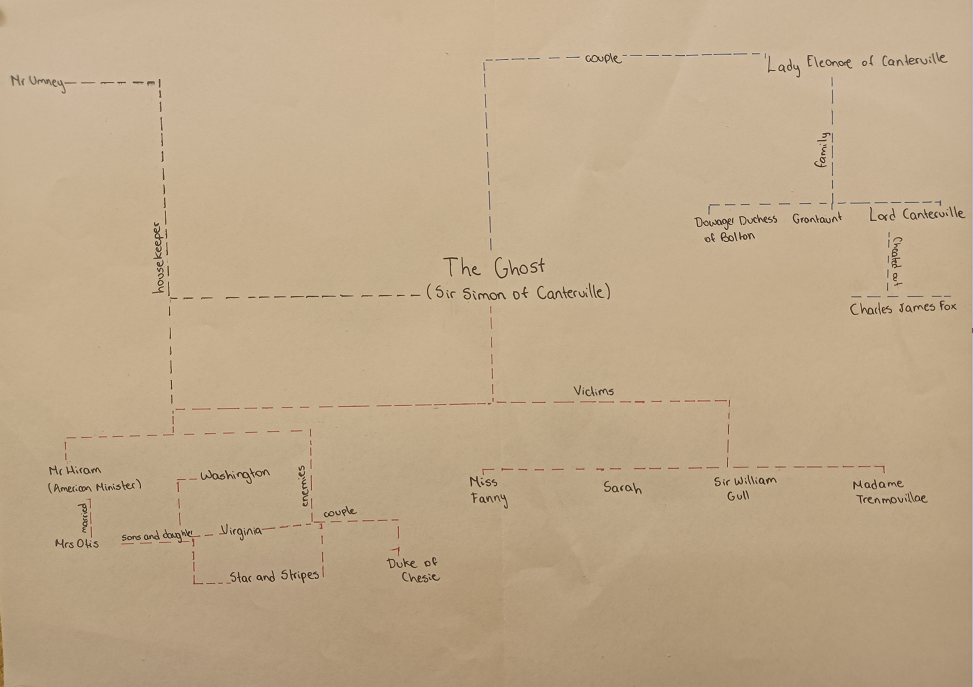 Mr Umney
couple
Lady Eleonore of Canterville
family
housekeeper
Dowager Duchess
of Bolton
Grantaunt
Lord Canterville
Cheated at
Charles James Fox
The Ghost
(Sir Simon of Canterville)
Victims
Mr Hiram
(American Minister)
married
Mrs Otis
Washington
sons and daughter
Virginia
Star and Stripes
enemies
couple
Duke of
Chesie
Miss
Fanny
Sarah
Sir William
Gull
Madame
Trenmovillae